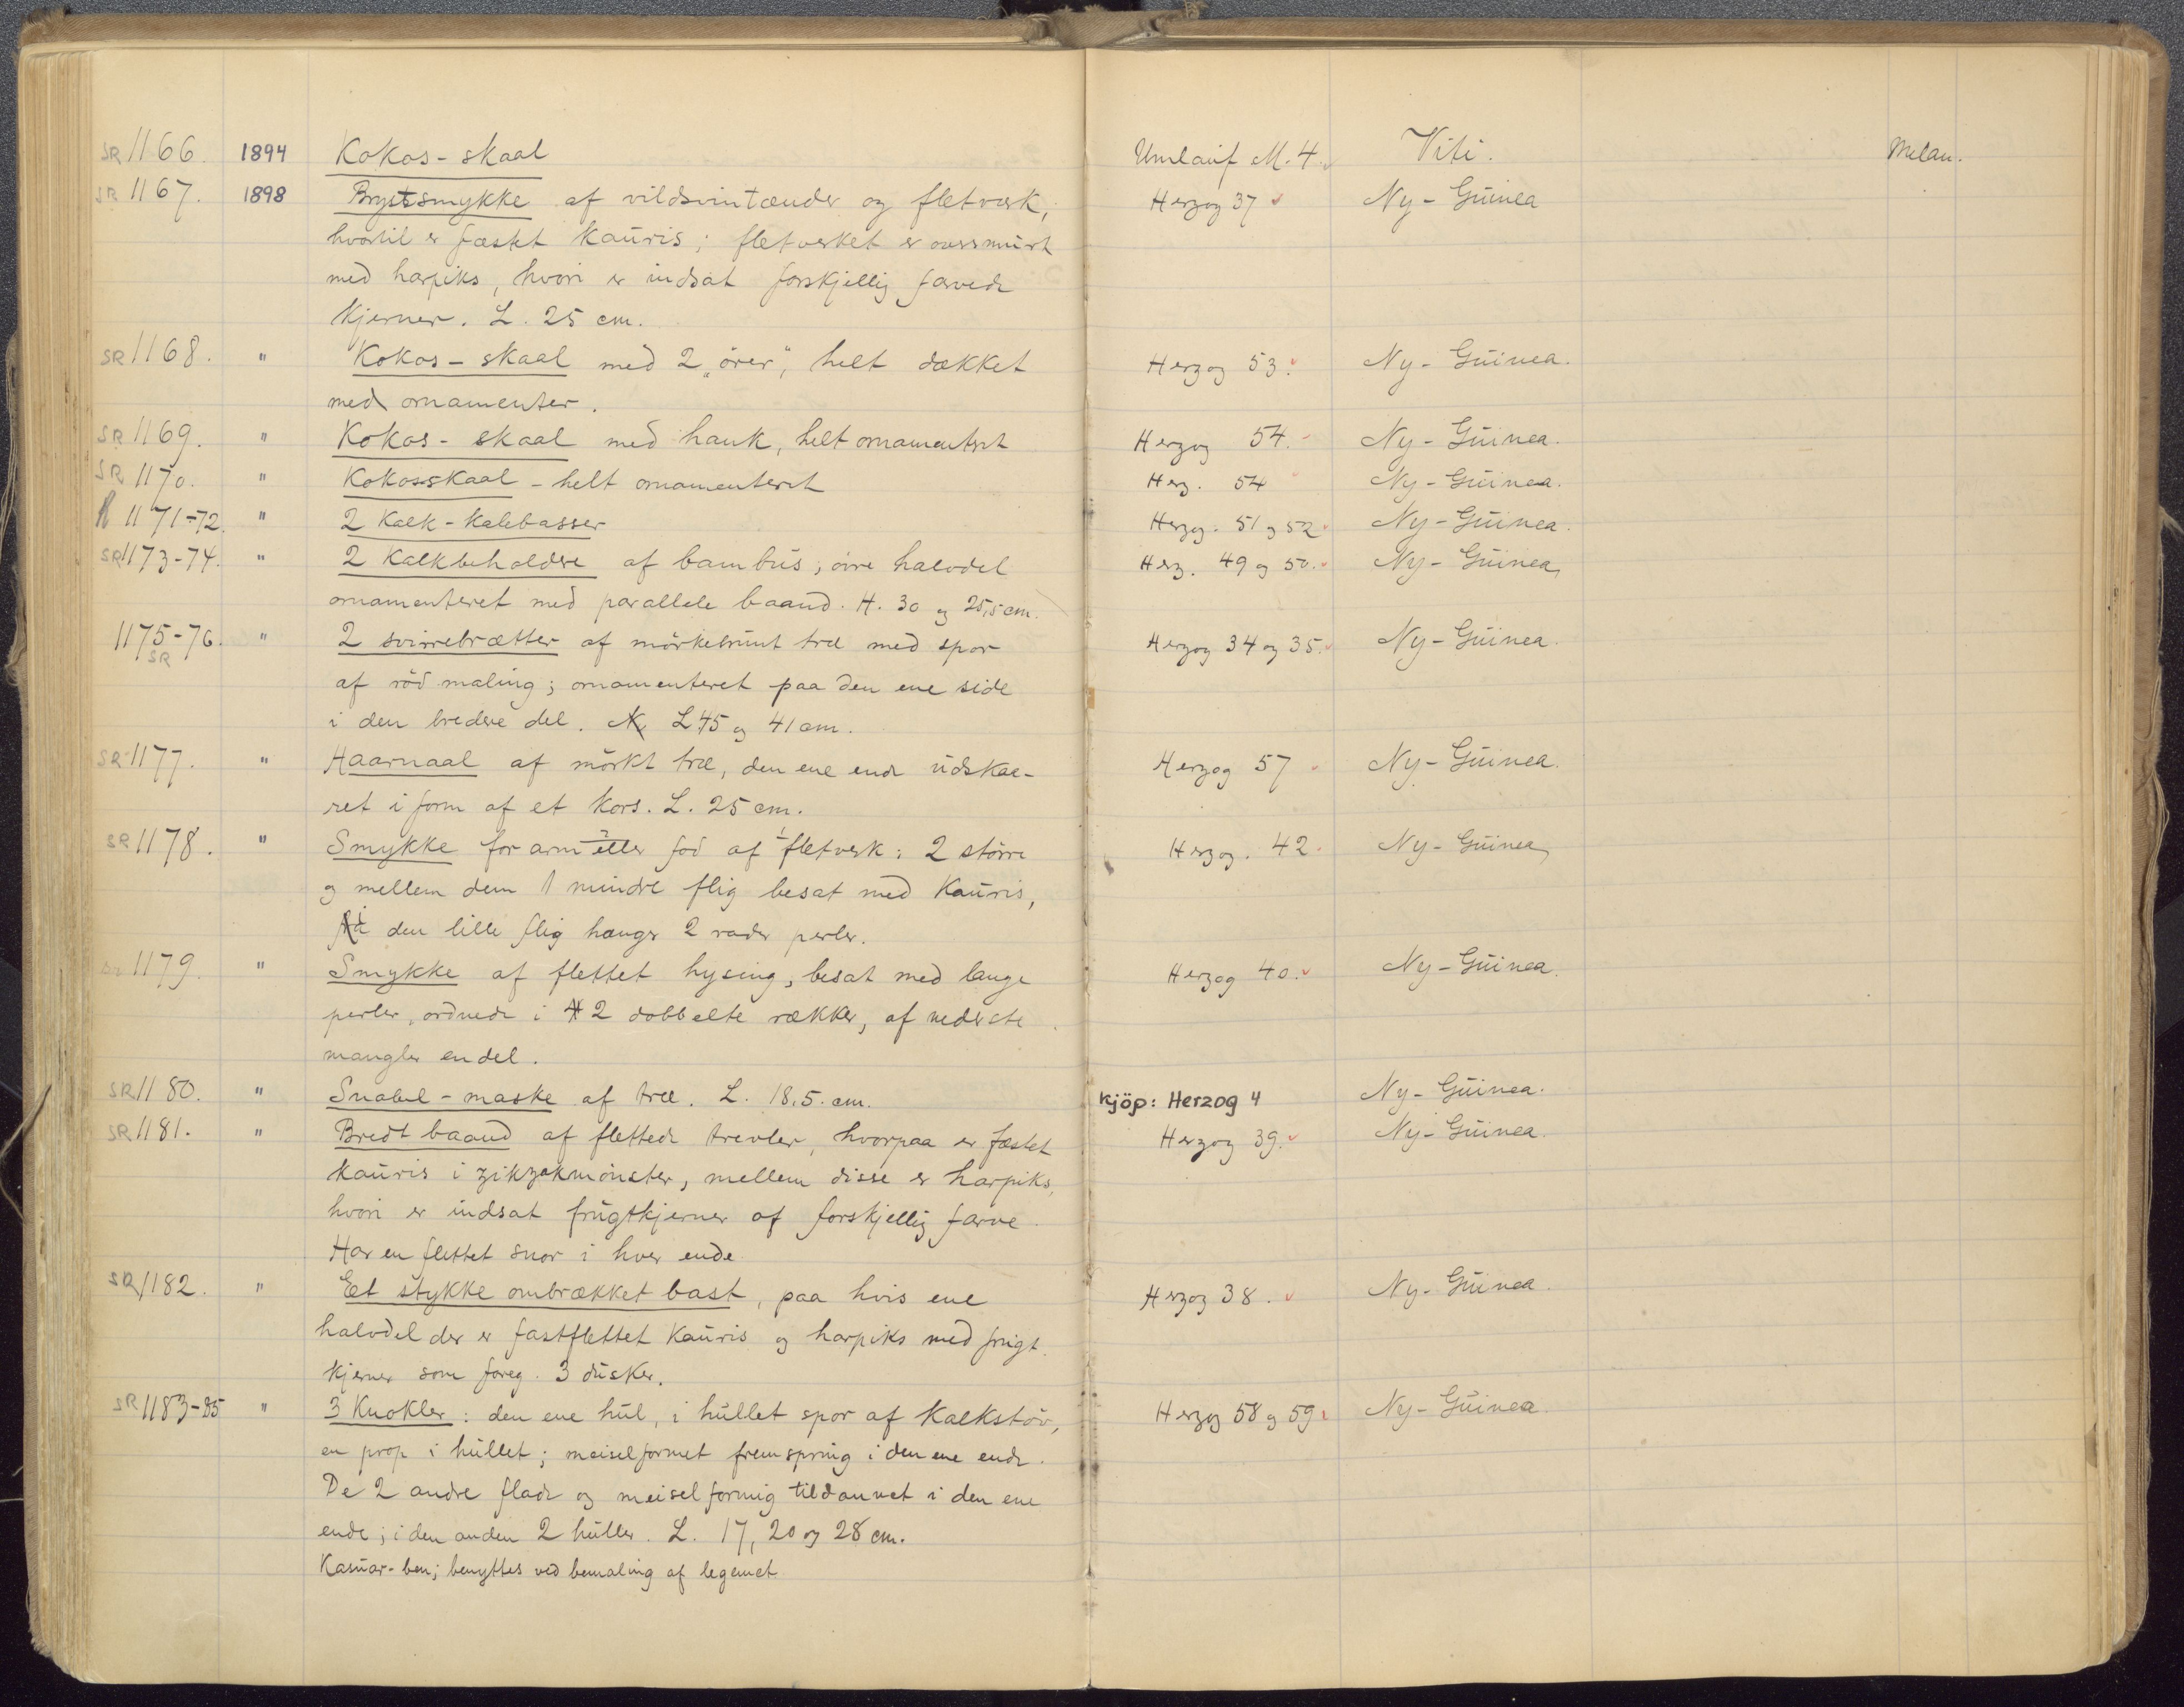 SR 1166. 1894 Kokos-skaal Umlauf M. 4. Viti. Melan.
SR 1167. 1898 Brystsmykke af vildsvintænder og fletverk, Herzog 37 Ny-Guinea
hvortil er fæstet kauris; fletverket er oversmurt
med harpiks, hvori er indsat forskjellig farvede
kjerner. L. 25 cm.
SR 1168. " Kokos-skaal med 2 „ører", helt dækket Herzog 53. Ny-Guinea.
med ornamenter.
SR 1169. " Kokos-skaal med hank, helt ornamentert Herzog 54. Ny-Guinea.
SR 1170. " Kokosskaal - helt ornamenteret Herz. 54 Ny-Guinea.
R 1171-72. " 2 Kalk-kalebasser Herzog. 51 og 52 Ny-Guinea.
SR 1173-74. " 2 Kalkbeholdere af bambus; øvre halvdel Herz. 49 og 50. Ny-Guinea,
ornamenteret med parallele baand. H. 30 og 25,5 cm.
1175-76. SR " 2 svirrebrætter af mörkebrunt træ med spor Herzog 34 og 35. Ny-Guinea.
af röd maling; ornamenteret paa den ene side
i den bredere del. L 45 og 41 cm.
SR 1177. " Haarnaal af mörkt træ, den ene ende udskaa- Herzog 57 Ny-Guinea.
ret i form af et kors. L. 25 cm.
SR 1178. " Smykke for arm eller fod af fletverk: 2 större Herzog. 42. Ny-Guinea,
og mellem dem 1 mindre flig besat med Kauris,
i den lille flig hænger 2 rader perler.
SR 1179. " Smykke af flettet hysing, besat med lange Herzog 40. Ny-Guinea.
perler, ordnede i 2 dobbelte rækker, af nederste
mangler en del.
SR 1180. " Snabel-maske af træ. L. 18.5. cm. Kjöp: Herzog 4 Ny-Guinea.
SR 1181. " Bredt baand af flettede trevler, hvorpaa er fæstet Herzog 39. Ny-Guinea.
kauris i zikzakmönster, mellem disse er harpiks,
hvori er indsat frugtkjerner af forskjellig farve.
Har en flettet snor i hver ende
SR 1182. " Et stykke ombrækket bast, paa hvis ene Herzog 38. Ny-Guinea.
halvdel der er fastflettet Kauris og harpiks med frugt.
kjerner som foreg. 3 dusker.
SR 1183-85 " 3 Knokler: den ene hul, i hullet spor af Kalkstöv, Herzog 58 og 59 Ny-Guinea.
en prop i hullet; meiselformet fremspring i den ene ende.
De 2 andre flade og meiselformig tildannet i den ene
ende; i den anden 2 huller. L. 17, 20 og 28 cm.
Kasuar-ben; benyttes ved bemaling af legemet.